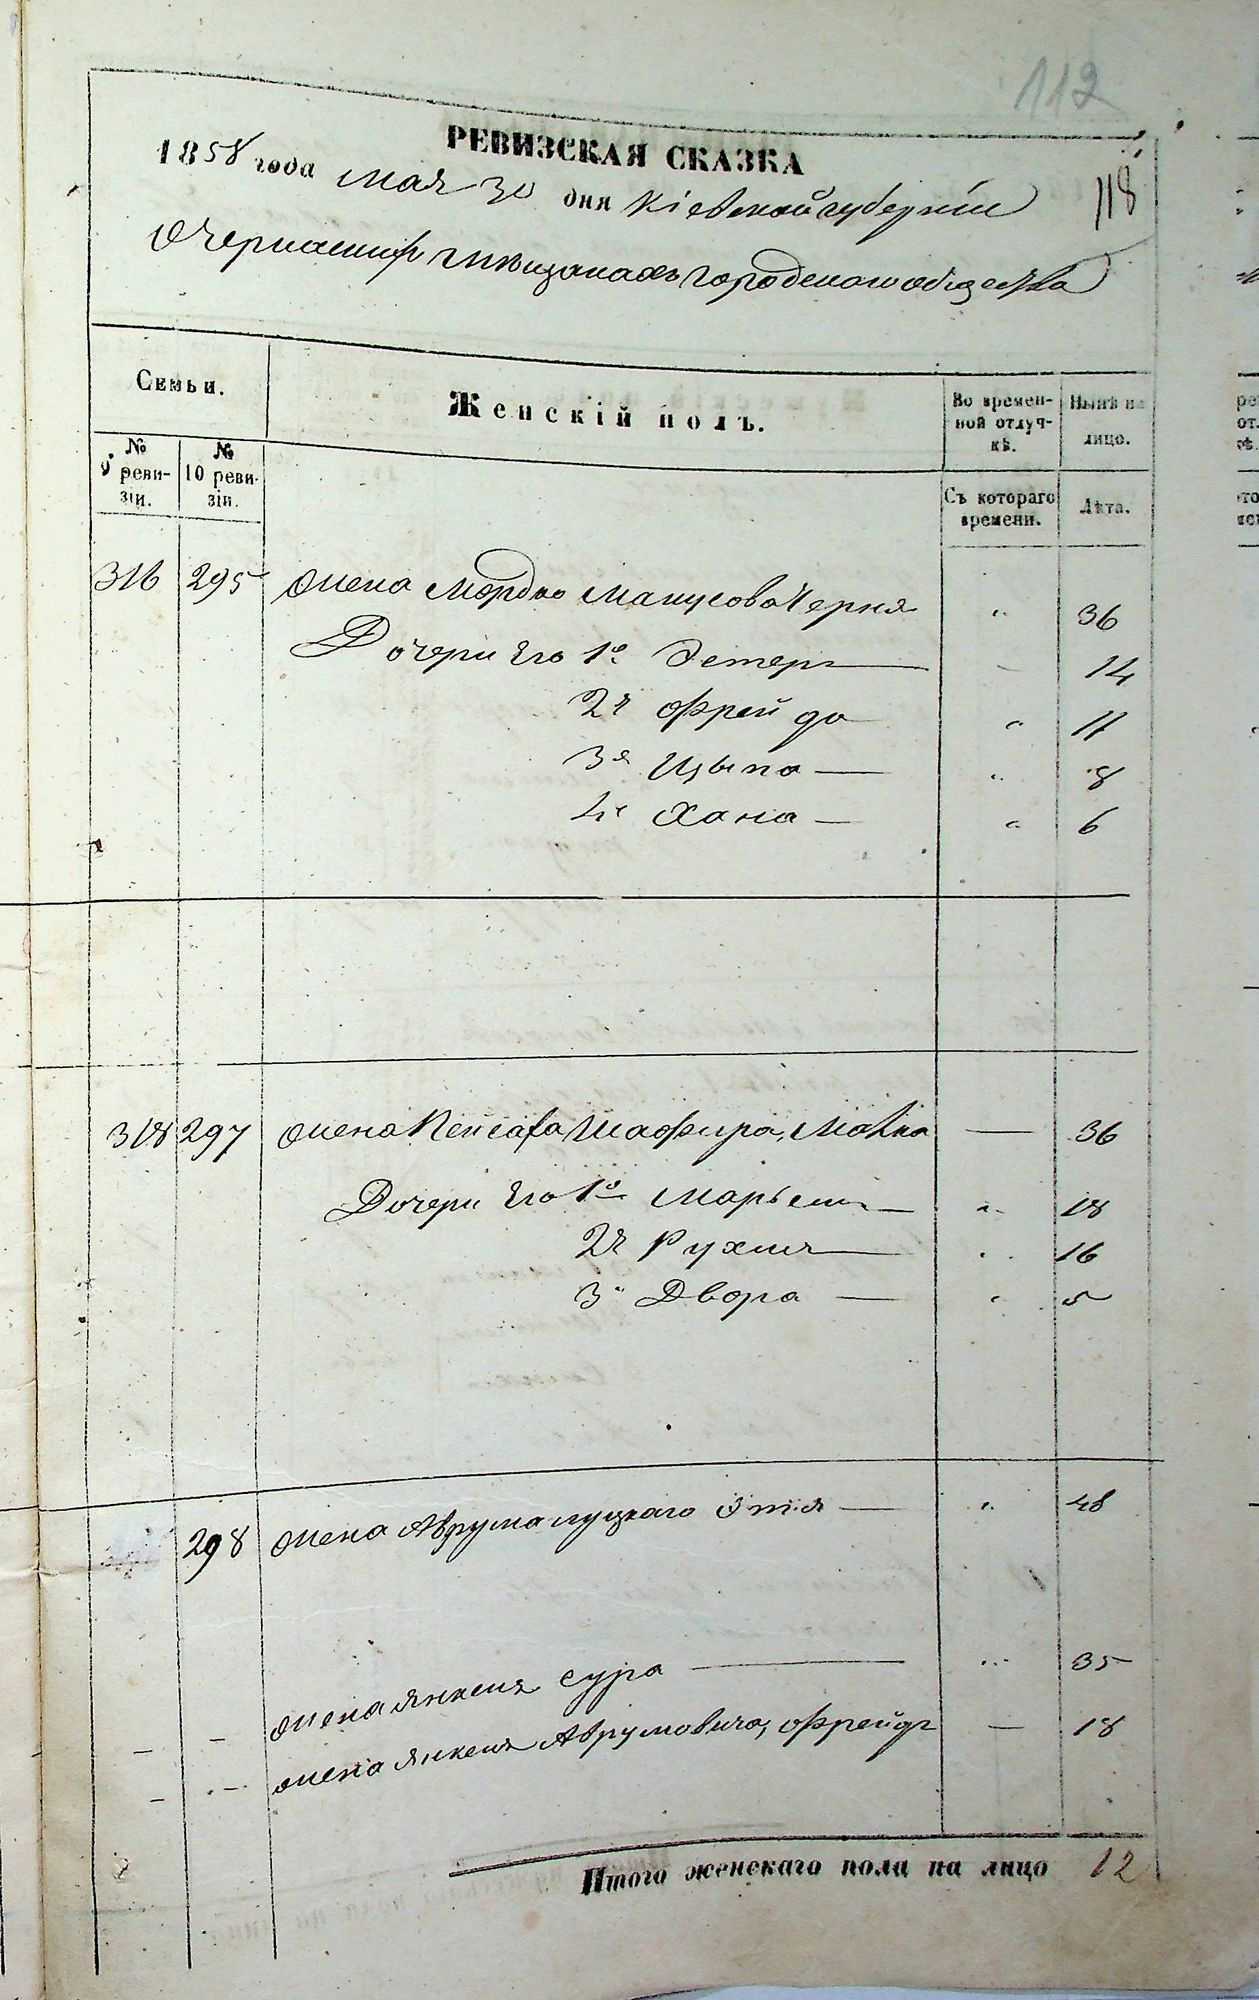 112
РЕВИЗСКАЯ СКАЗКА
1858 года мая 30 дня Кіевской губерніи
118
О Черкаскихъ мѣщанахъ городскаго общества
Семьи.
Женскій полъ.
Во времен-
ной отлуч-
кѣ.
Нынѣ на
лицо.
№
9 реви-
зіи.
№
10 реви-
зіи.
Съ котораго
времени.
Лѣта.
316 295 Жена Мордко Манусова Черня " 36
Дочери Его 1я Эстеръ — 14
2я Фрейда " 11
3я Цыпа — " 8
4я Хана — " 6
318 297 Жена Шафира, Малка — 36
Дочери Его 1я Марьемъ — " 18
2я Рухля — " 16
3я Двора — " 5
298 Жена Аврума Луцкаго Этя — " 48
— — Жена Янкеля Сура — " 35
— — Жена Янкеля Аврумовича, Фрейда — 18
Итого женскаго пола на лицо 12